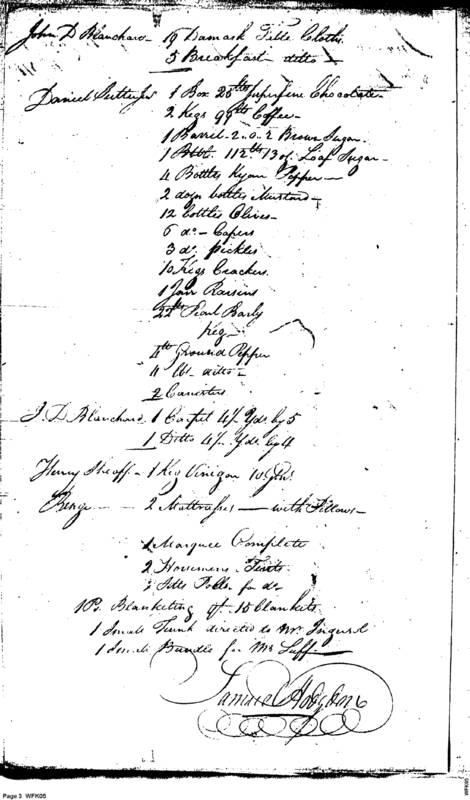 John D Blanchard - 19 Damask Table Cloths
5 Breakfast ditto
Daniel 1 Box 25lb superfine Chocolate
2 Kegs 99lb Coffee
1 Barrel 2.0.2 Brown Sugar
1 Bbl. 112lb 13oz Loaf Sugar
4 Bottles Kyan Pepper
2 dozn bottles Mustard
12 bottles Olives
6 do - Capers
3 do pickles
10 Kegs Crackers
1 Jarr Raisins
22lb Pearl Barly
Keg
4lb Ground Pepper
4 lbs ditto
2 Canesters
J. D Blanchard 1 Carpet 4½ Yds by 5
1 Ditto 4½ Yds by 4
Henry Sheaff - 1 Keg Vinegar 10 Glns
Binge 2 Mattrasses - with Pillows
1 Marquee Complete
2 Horsemens Tents
Setts Poles for do
1 Ps. Blanketing qt 15 blankets
1 Small Trunk directed to Mr
1 Small Bundle for Mr
Samuel Hodgdon
Page 3 WFK05
WFK05